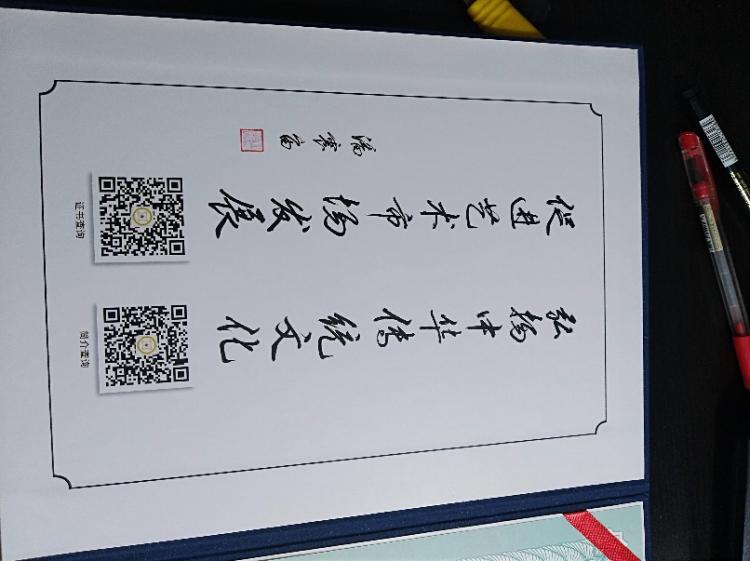 弘扬中华传统文化
促进艺术市场发展
潘震宙
证书查询
简介查询